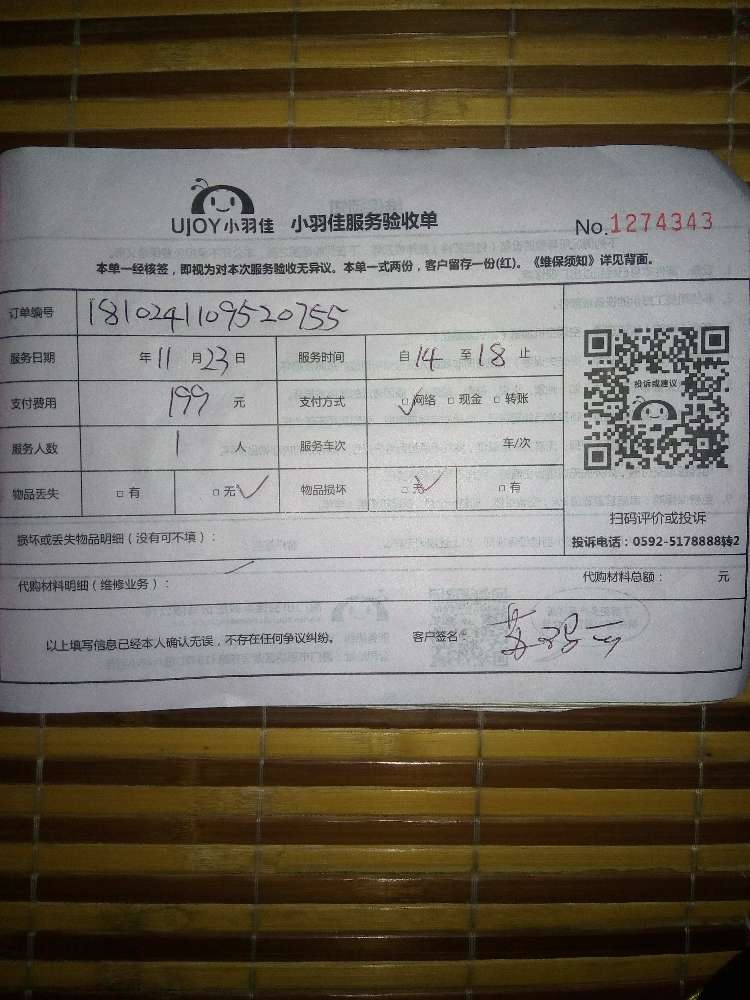 UJOY小羽佳 小羽佳服务验收单 No.1274343
本单一经核签，即视为对本次服务验收无异议。本单一式两份，客户留存一份(红)。《维保须知》详见背面。
订单编号 1810241109520755
服务日期 年11月23日 服务时间 自14至18止
支付费用 199元 支付方式 ☑网络 □现金 □转账
投诉或建议
服务人数 1人 服务车次 车/次
物品丢失 □有 □无✓ 物品损坏 □无✓ □有
扫码评价或投诉
损坏或丢失物品明细（没有可不填）： 投诉电话：0592-5178888转2
代购材料明细（维修业务）： 代购材料总额： 元
以上填写信息已经本人确认无误，不存在任何争议纠纷。 客户签名：